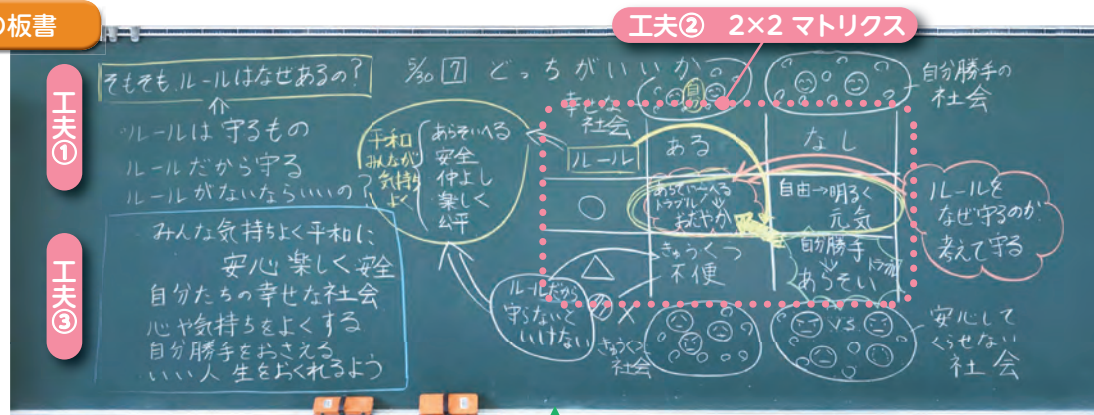 の板書
工夫② 2×2 マトリクス
工夫①
工夫③
そもそも、ルールはなぜあるの?
ルールは守るもの
ルールだから守る
ルールがないならいいの?
みんな気持ちよく平和に
安心 楽しく 安全
自分たちの幸せな社会
心や気持ちをよくする
自分勝手をおさえる
いい人生をおくれるよう
5/30 7 どっちがいいか
平和
みんなが
気持ち
よく
あらそいへる
安全
仲よし
楽しく
公平
ルールだから
守らないと
いけない
幸せな
社会
自
自分勝手の
社会
ルール
ある
なし
○
あらそいへる
トラブル
おだやか
自由→明るく
元気
△
×
きゅうくつ
不便
自分勝手
トラブル
あらそい
ルールを
なぜ守るのか
考えて守る
きゅうくつ
社会
VS
安心して
くらせない
社会